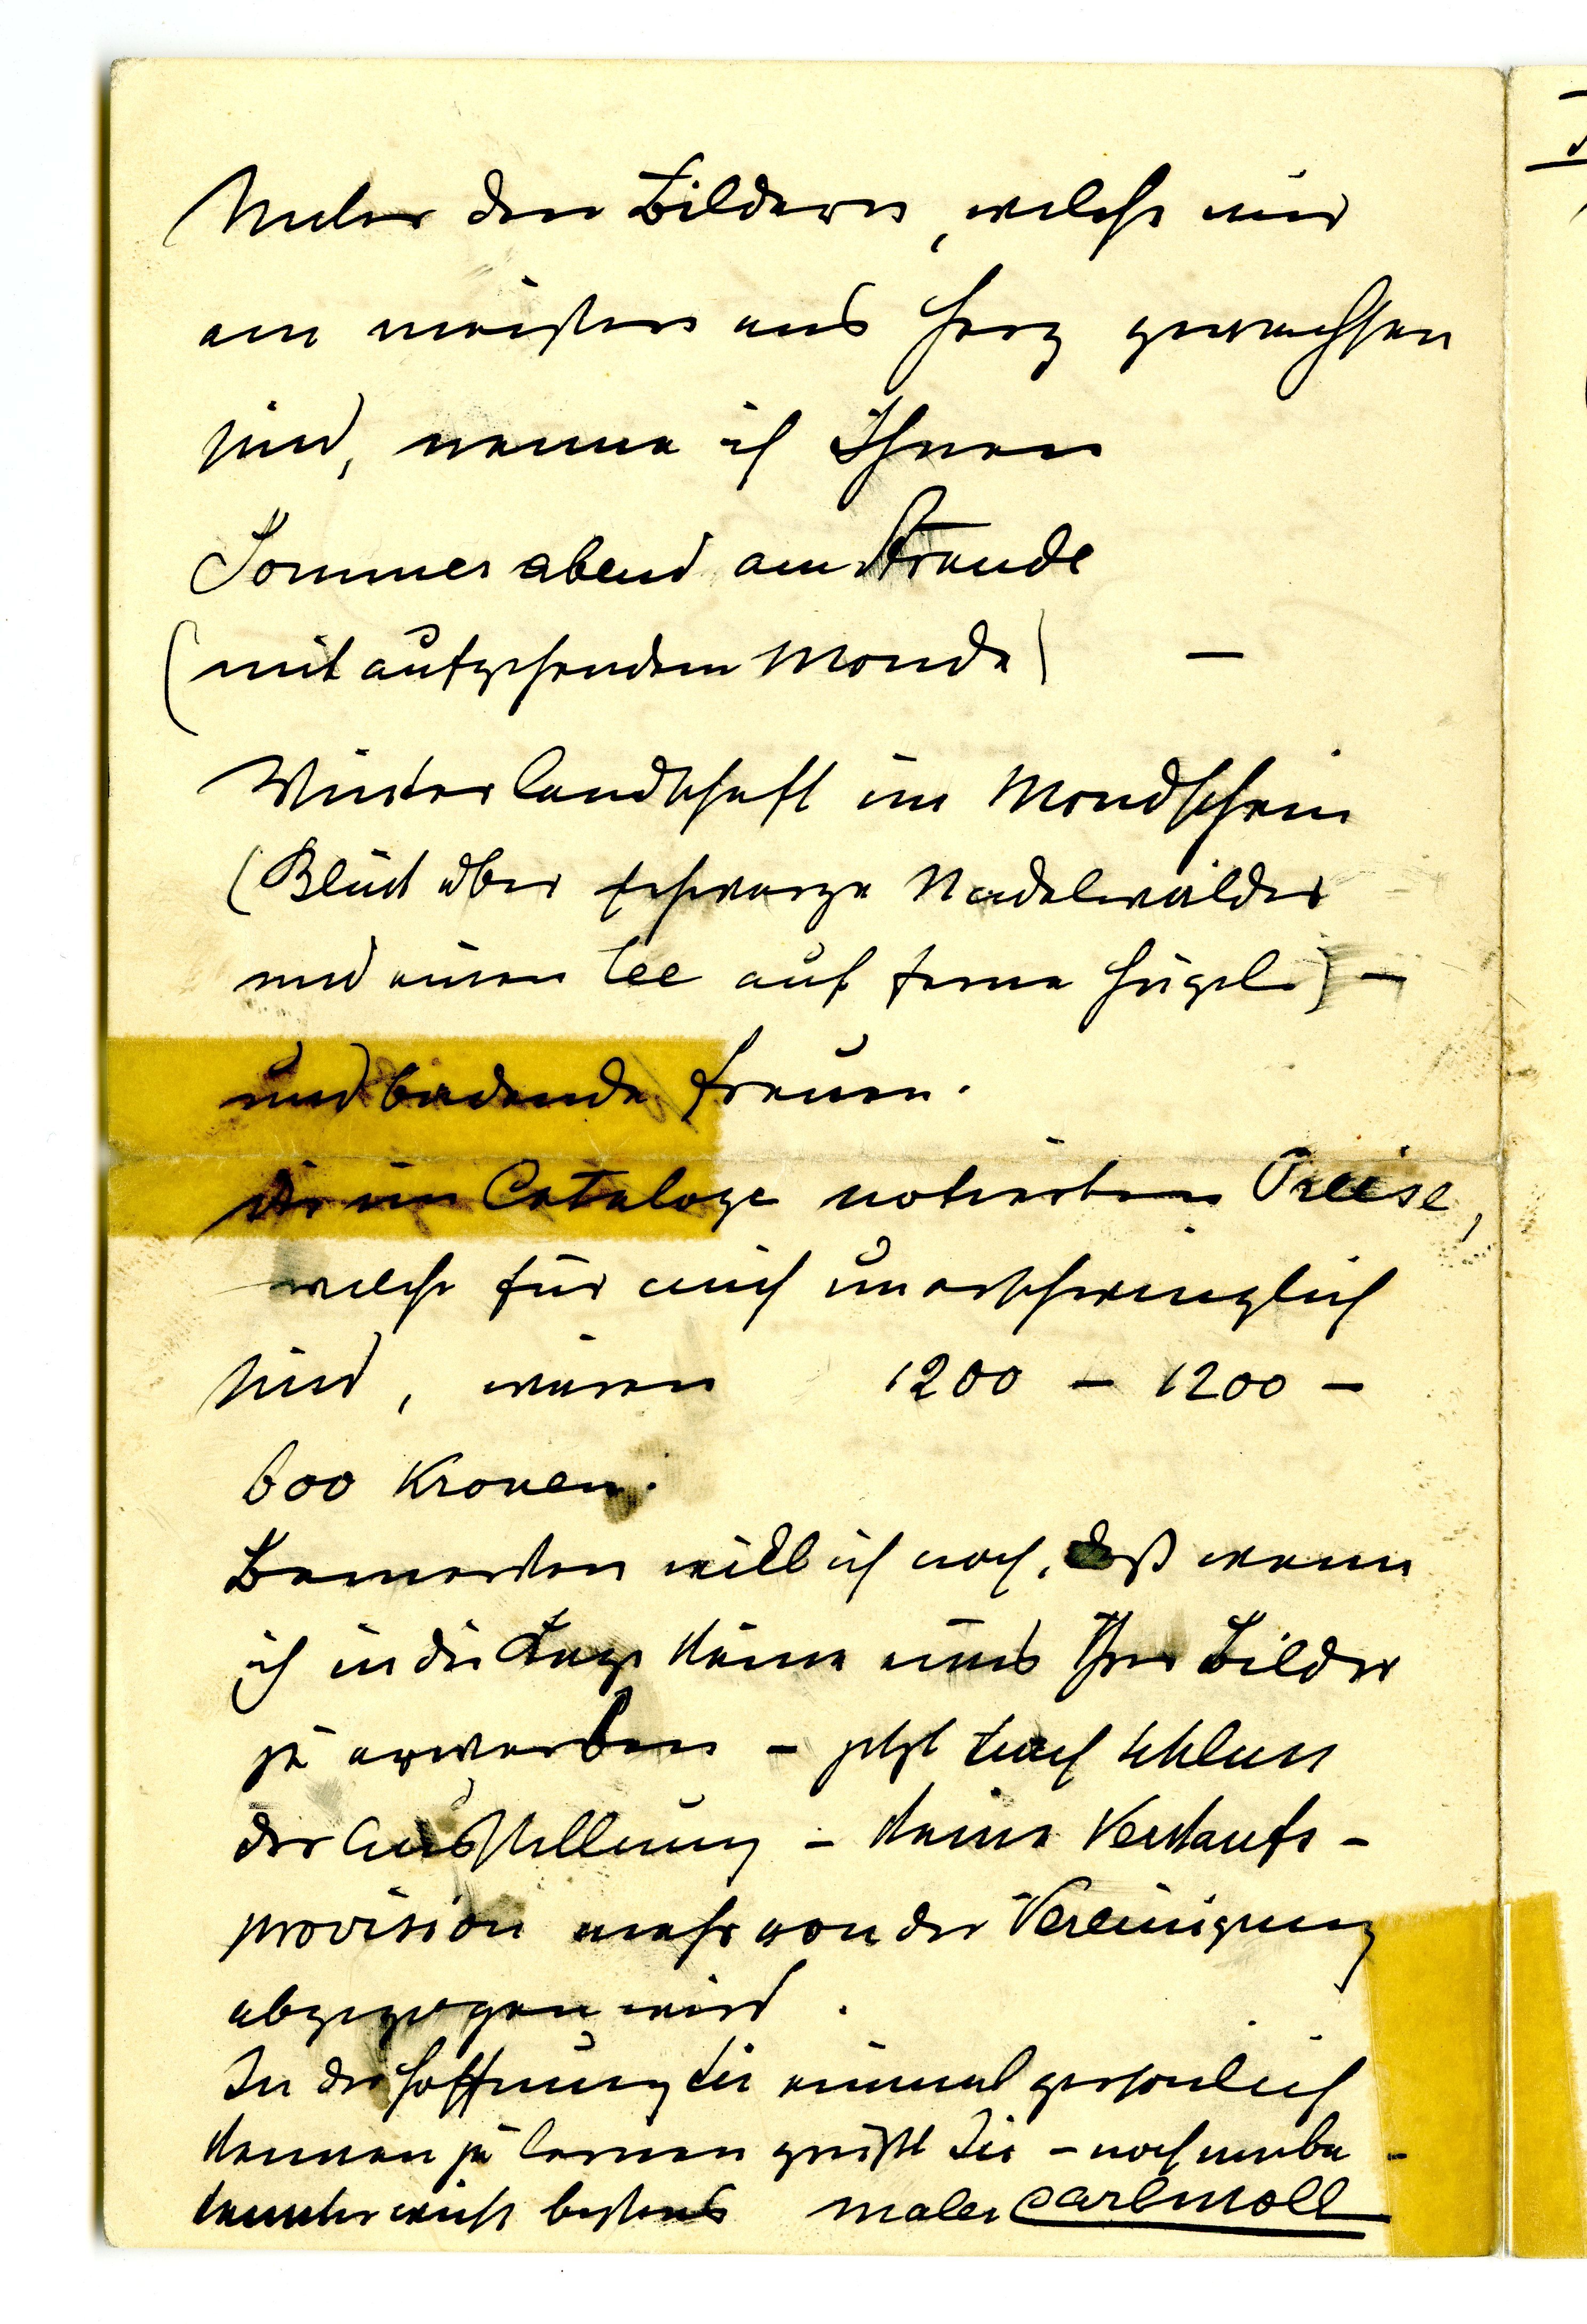 Unter den Bildern, welche mir
am meisten ans Herz gewachsen
sind, nenne ich Ihnen
Sommerabend am Strande
(mit aufgehendem Monde) –
Winterlandschaft im Mondschein
(Blick über schwarze Nadelwälder
und einen See auf ferne Hügel) –
und badende Frauen.
Die im Cataloge notierten Preise,
welche für mich unerschwinglich
sind, waren 1200 – 1200 –
600 Kronen.
Bemerken will ich noch, daß wenn
ich in die Lage käme eines Ihrer Bilder
zu erwerben – jetzt nach Schluss
der Ausstellung – keine Verkaufs-
provision mehr von der Vereinigung
abgezogen wird.
In der Hoffnung Sie einmal persönlich
kennen zu lernen grüßt Sie – noch unbe-
kannter weise bestens Maler Carl Moll